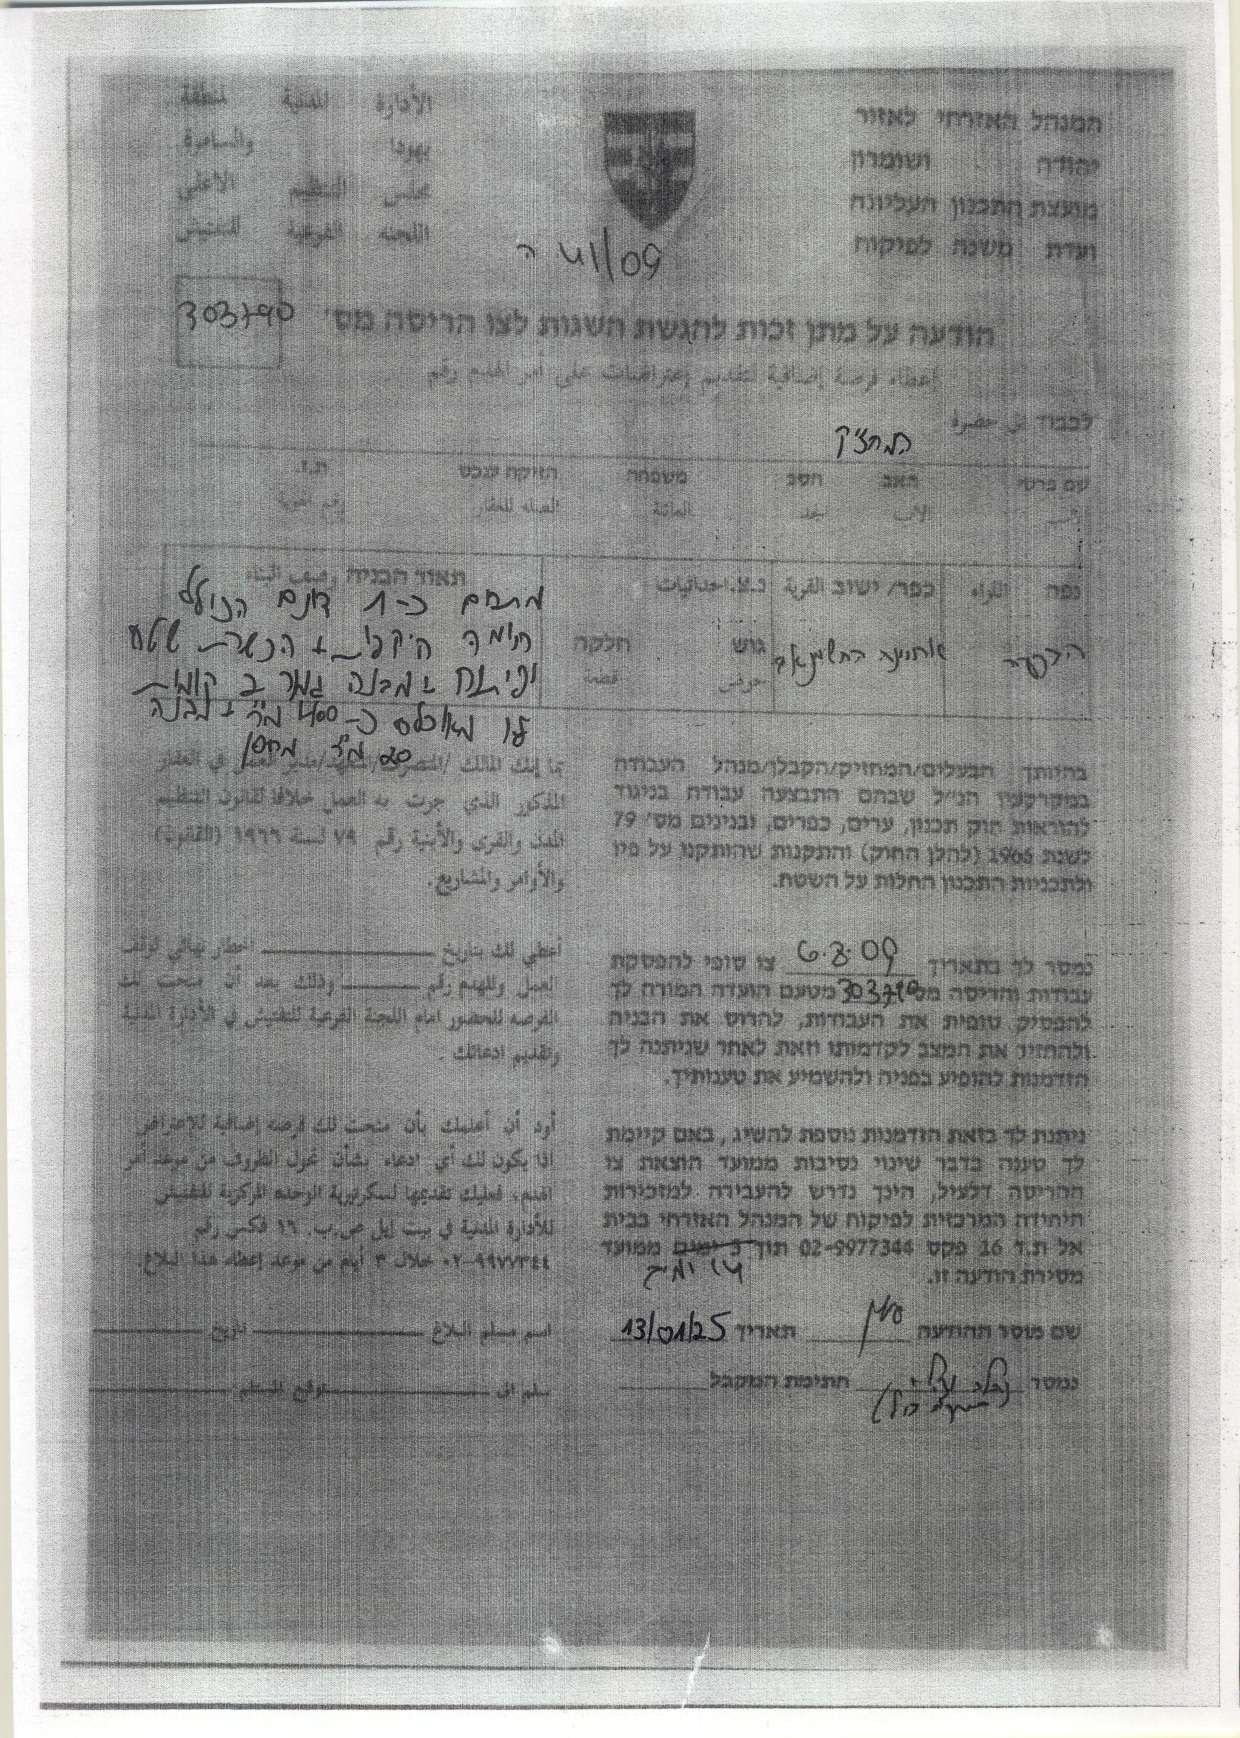 המנהל האזרחי לאזור
יהודה ושומרון
מועצת התכנון העליונה
ועדת משנה לפיקוח
الأدارة المدنية لمنطقة
يهودا والسامرة
مجلس التنظيم الاعلى
اللجنه الفرعية للتفتيش
ה 41/09
הודעה על מתן זכות להגשת השגות לצו הריסה מס' 303790
إعطاء فرصة إضافية لتقديم إعتراضات على أمر الهدم رقم
לכבוד الى حضرة
המחזיק
שם פרטי האב הסב משפחה הזיקה לנכס ת.ז.
الاسم الأب الجد العائلة الصله للعقار رقم الهوية
נפה اللواء כפר/ ישוב القرية נ.צ. احداثيات תאור הבניה وصف البناء
גוש חלקה
حوض قطعة
מתחם כ-1 דונם הכולל
חומה היקפית + הכשרת שטח
ופיתוח + מבנה גמר ב קומות
לא מאוכלס כ-400 מ"ר + מבנה
20 מ"ר מחסן
בהיותך הבעלים/המחזיק/הקבלן/מנהל העבודה
במקרקעין הנ"ל שבהם התבצעה עבודה בניגוד
להוראות חוק תכנון, ערים, כפרים, ובנינים מס' 79
לשנת 1966 (להלן החוק) והתקנות שהותקנו על פיו
ולתכניות התכנון החלות על השטח.
بما إنك المالك /المتصرف/المتعهد/مدير العمل في العقار
المذكور الذي جرت به العمل خلافا لقانون التنظيم
المدن والقرى والأبنية رقم ٧٩ لسنة ١٩٦٦ (القانون)
والأوامر والمشاريع.
נמסר לך בתאריך 6.8.09 צו סופי להפסקת
עבודות והריסה מס' 303790 מטעם הועדה המורה לך
להפסיק סופית את העבודות, להרוס את הבניה
ולהחזיר את המצב לקדמותו וזאת לאחר שניתנה לך
הזדמנות להופיע בפניה ולהשמיע את טענותיך.
أعطي لك بتاريخ اخطار نهائي لوقف
العمل وللهدم رقم وذلك بعد أن منحت لك
الفرصه للحضور امام اللجنة الفرعية للتفتيش في الأدارة المدنية
وتقديم ادعائك .
ניתנת לך בזאת הזדמנות נוספת להשיג, באם קיימת
לך טענה בדבר שינוי נסיבות ממועד הוצאת צו
ההריסה דלעיל, הינך נדרש להעבירה למזכירות
היחידה המרכזית לפיקוח של המנהל האזרחי בבית
אל ת.ד 16 פקס 02-9977344 תוך 3 ימים ממועד
מסירת הודעה זו.
أود أن أعلمك بأن منحت لك فرصه إضافية للإعتراض
اذا يكون لك أي ادعاء بشأن تحول الظروف من موعد أمر
الهدم، فعليك تقديمها لسكرتورية الوحده المركزية للتفتيش
للأدارة المدنية في بيت إيل ص.ب. ١٦ فكس رقم
٠٢-٩٩٧٧٣٤٤ خلال ٣ أيام من موعد إعطاء هذا البلاغ.
שם מוסר ההודעה תאריך 13/01/25
اسم مسلم البلاغ تاريخ
נמסר חתימת המקבל
سلم الى توقيع المستلم